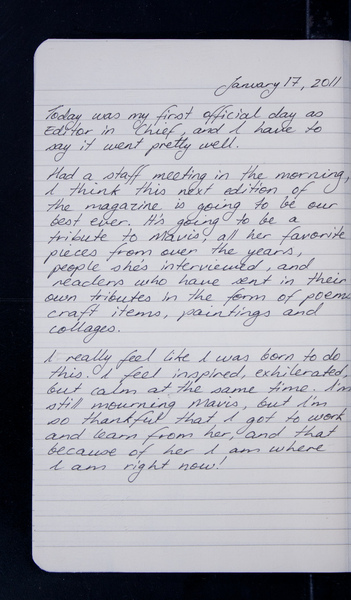 January 17, 2011
Today was my first official day as
Editor in Chief, and I have to
say it went pretty well.
Had a staff meeting in the morning,
I think this next edition of
the magazine is going to be our
best ever. It's going to be a
tribute to Mavis, all her favorite
pieces from over the years,
people she's interviewed, and
readers who have sent in their
own tributes in the form of poems
craft items, paintings and
collages.
I really feel like I was born to do
this. I feel inspired, exhilerated,
but calm at the same time. I'm
still mourning Mavis, but I'm
so thankful that I got to work
and learn from her, and that
because of her I am where
I am right now!